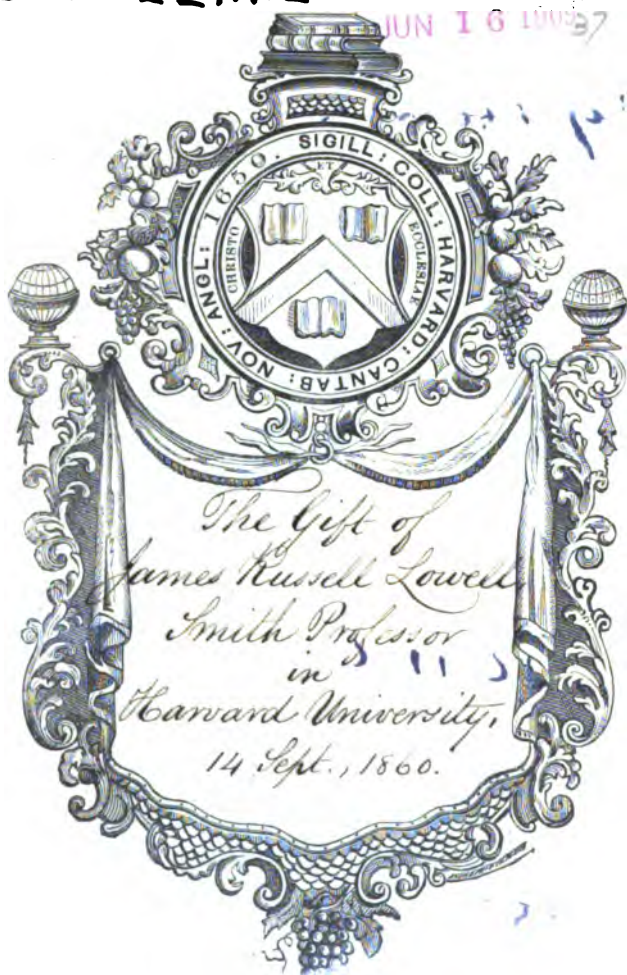 JUN 16 1909
37
SIGILL: COLL: HARVARD: CANTAB: NOV: ANGL: 1650.
ET
CHRISTO
ECCLESIAE
The Gift of
James Russell Lowell
Smith Professor
in
Harvard University,
14 Sept., 1860.